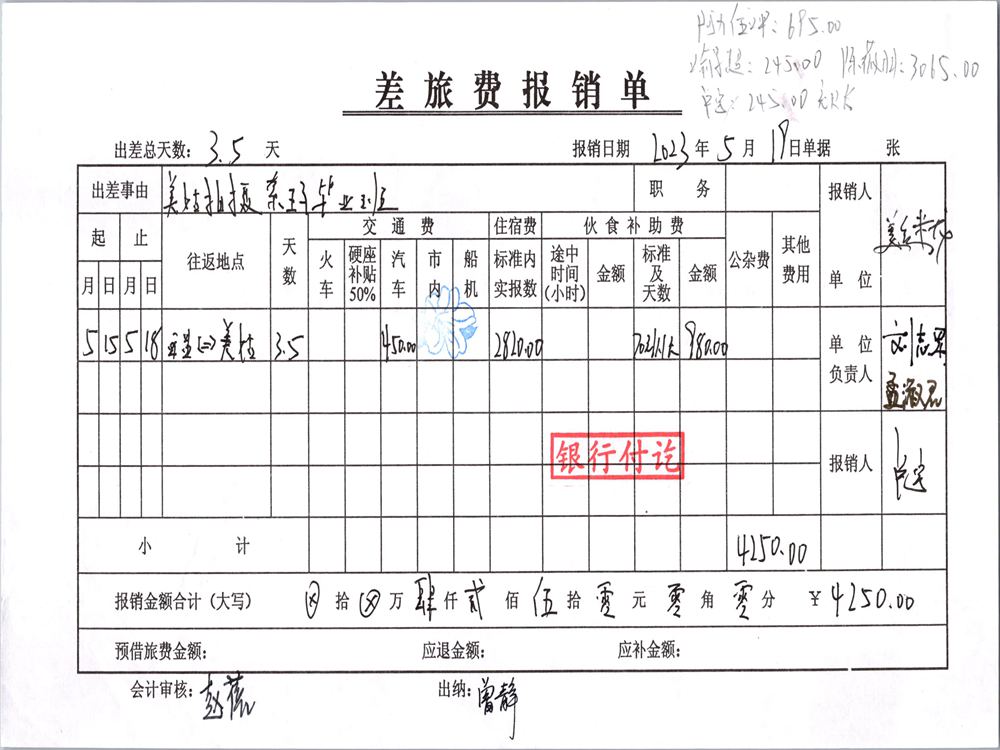 695.00
245.00 3065.00
245.00
差旅费报销单
出差总天数: 3.5 天 报销日期 2023 年 5 月 19 日单据 张
出差事由 美姑拍摄 毕业班 职务 报销人
起 止 往返地点 天数 交通费 住宿费 伙食补助费 公杂费 其他费用 单位
月 日 月 日 火车 硬座补贴50% 汽车 市内 船机 标准内实报数 途中时间(小时) 金额 标准及天数 金额
5 15 5 18 美姑 3.5 450.00 2820.00 980.00 单位负责人 刘志
银行付讫 报销人
小计 4250.00
报销金额合计(大写) ⊗ 拾 ⊗ 万 肆 仟 贰 佰 伍 拾 零 元 零 角 零 分 ¥ 4250.00
预借旅费金额: 应退金额: 应补金额:
会计审核: 赵 出纳: 曾静